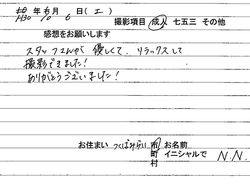 H30年10月6日(土)
撮影項目 成人 七五三 その他
感想をお願いします
スタッフさんが優しくて、リラックスして
撮影できました!
ありがとうございました!
お住まい つくばみらい 市 町 村
お名前 イニシャルで N.N.